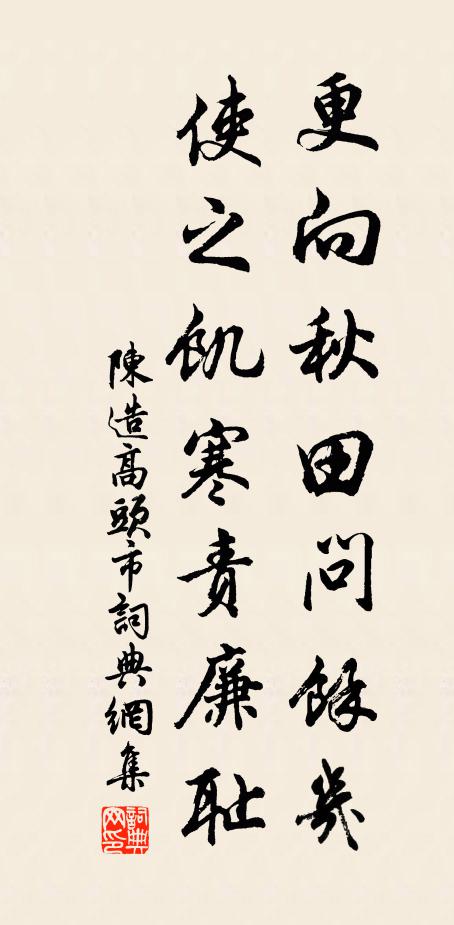 更向秋田問餘幾
使之飢寒責廉耻
陳造高頭市詞典網集
詞典网印